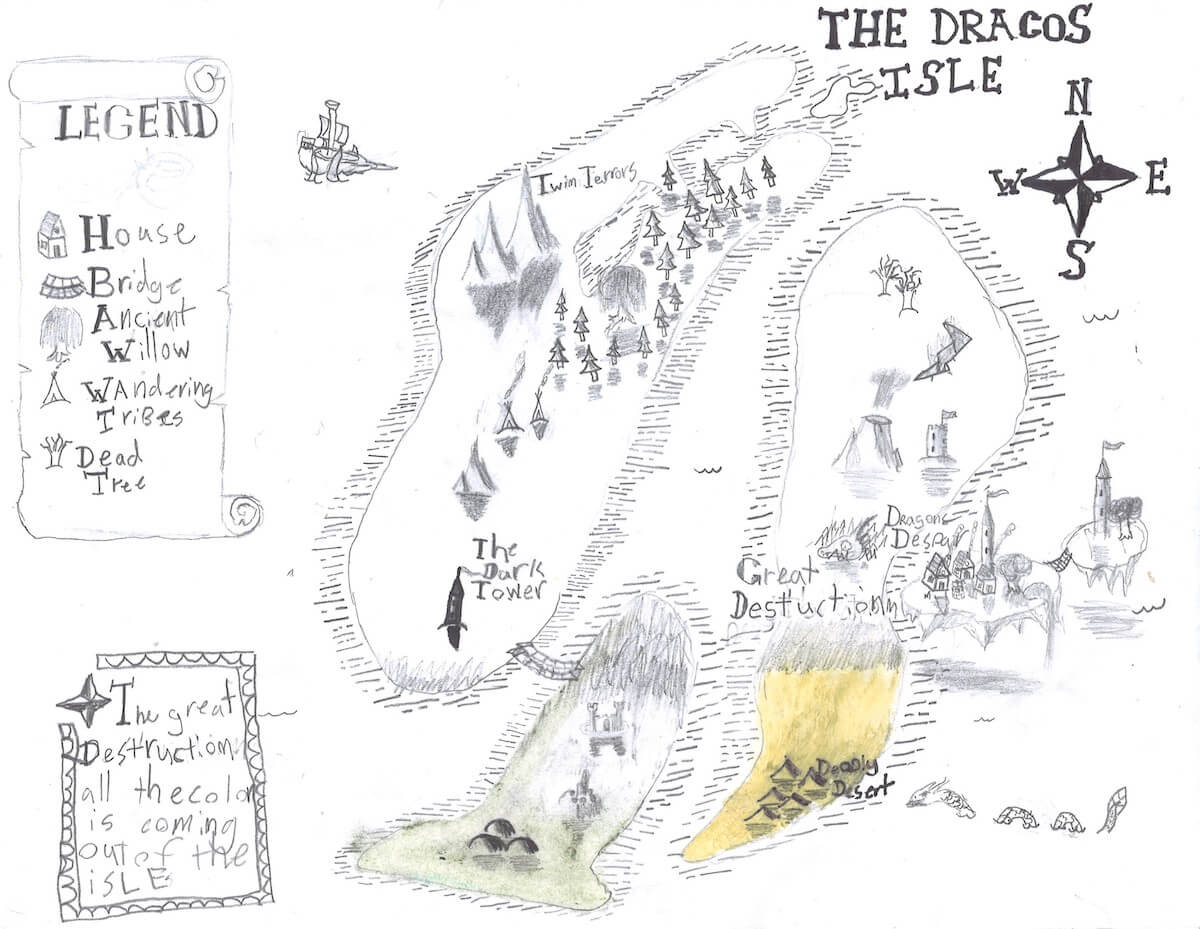 THE DRAGOS
ISLE
N
W
E
S
LEGEND
House
Bridge
Ancient
Willow
WAndering
TriBes
Dead
Tree
Twin Terrors
The
Dark
Tower
Dragons
Despair
Great
Destuctionn
Deadly
Desert
The great
Destruction
all the color
is coming
out of the
iSLE